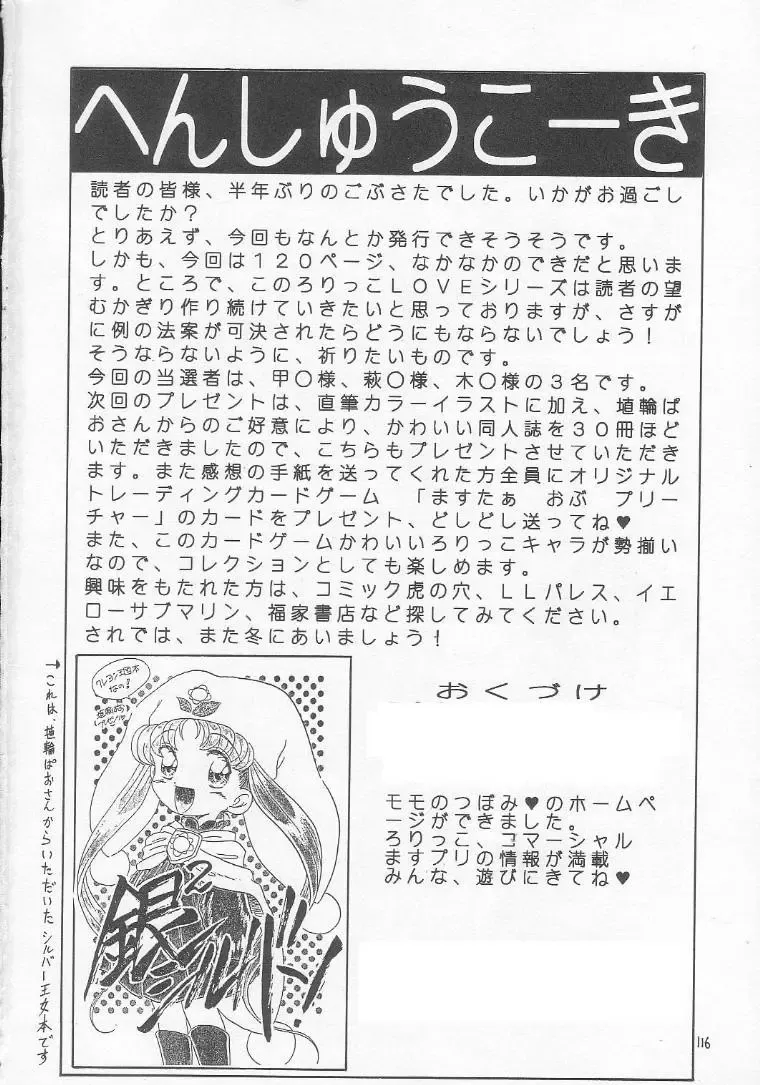 へんしゅうこーき
読者の皆様、半年ぶりのごぶさたでした。いかがお過ごし
でしたか？
とりあえず、今回もなんとか発行できそうそうです。
しかも、今回は１２０ページ、なかなかのできだと思いま
す。ところで、このろりっこＬＯＶＥシリーズは読者の望
むかぎり作り続けていきたいと思っておりますが、さすが
に例の法案が可決されたらどうにもならないでしょう！
そうならないように、祈りたいものです。
今回の当選者は、甲〇様、萩〇様、木〇様の３名です。
次回のプレゼントは、直筆カラーイラストに加え、埴輪ぱ
おさんからのご好意により、かわいい同人誌を３０冊ほど
いただきましたので、こちらもプレゼントさせていただき
ます。また感想の手紙を送ってくれた方全員にオリジナル
トレーディングカードゲーム　「ますたぁ　おぶ　プリー
チャー」のカードをプレゼント、どしどし送ってね♥
また、このカードゲームかわいいろりっこキャラが勢揃い
なので、コレクションとしても楽しめます。
興味をもたれた方は、コミック虎の穴、ＬＬパレス、イエ
ローサブマリン、福家書店など探してみてください。
されでは、また冬にあいましょう！
→これは、埴輪ぱおさんからいただいたシルバー王女本です
銀2
シルバー
おくづけ
モモのつぼみ♥のホームペ
ージができました。
ろりっこ、コマーシャル
ますプリの情報が満載
みんな、遊びにきてね♥
116